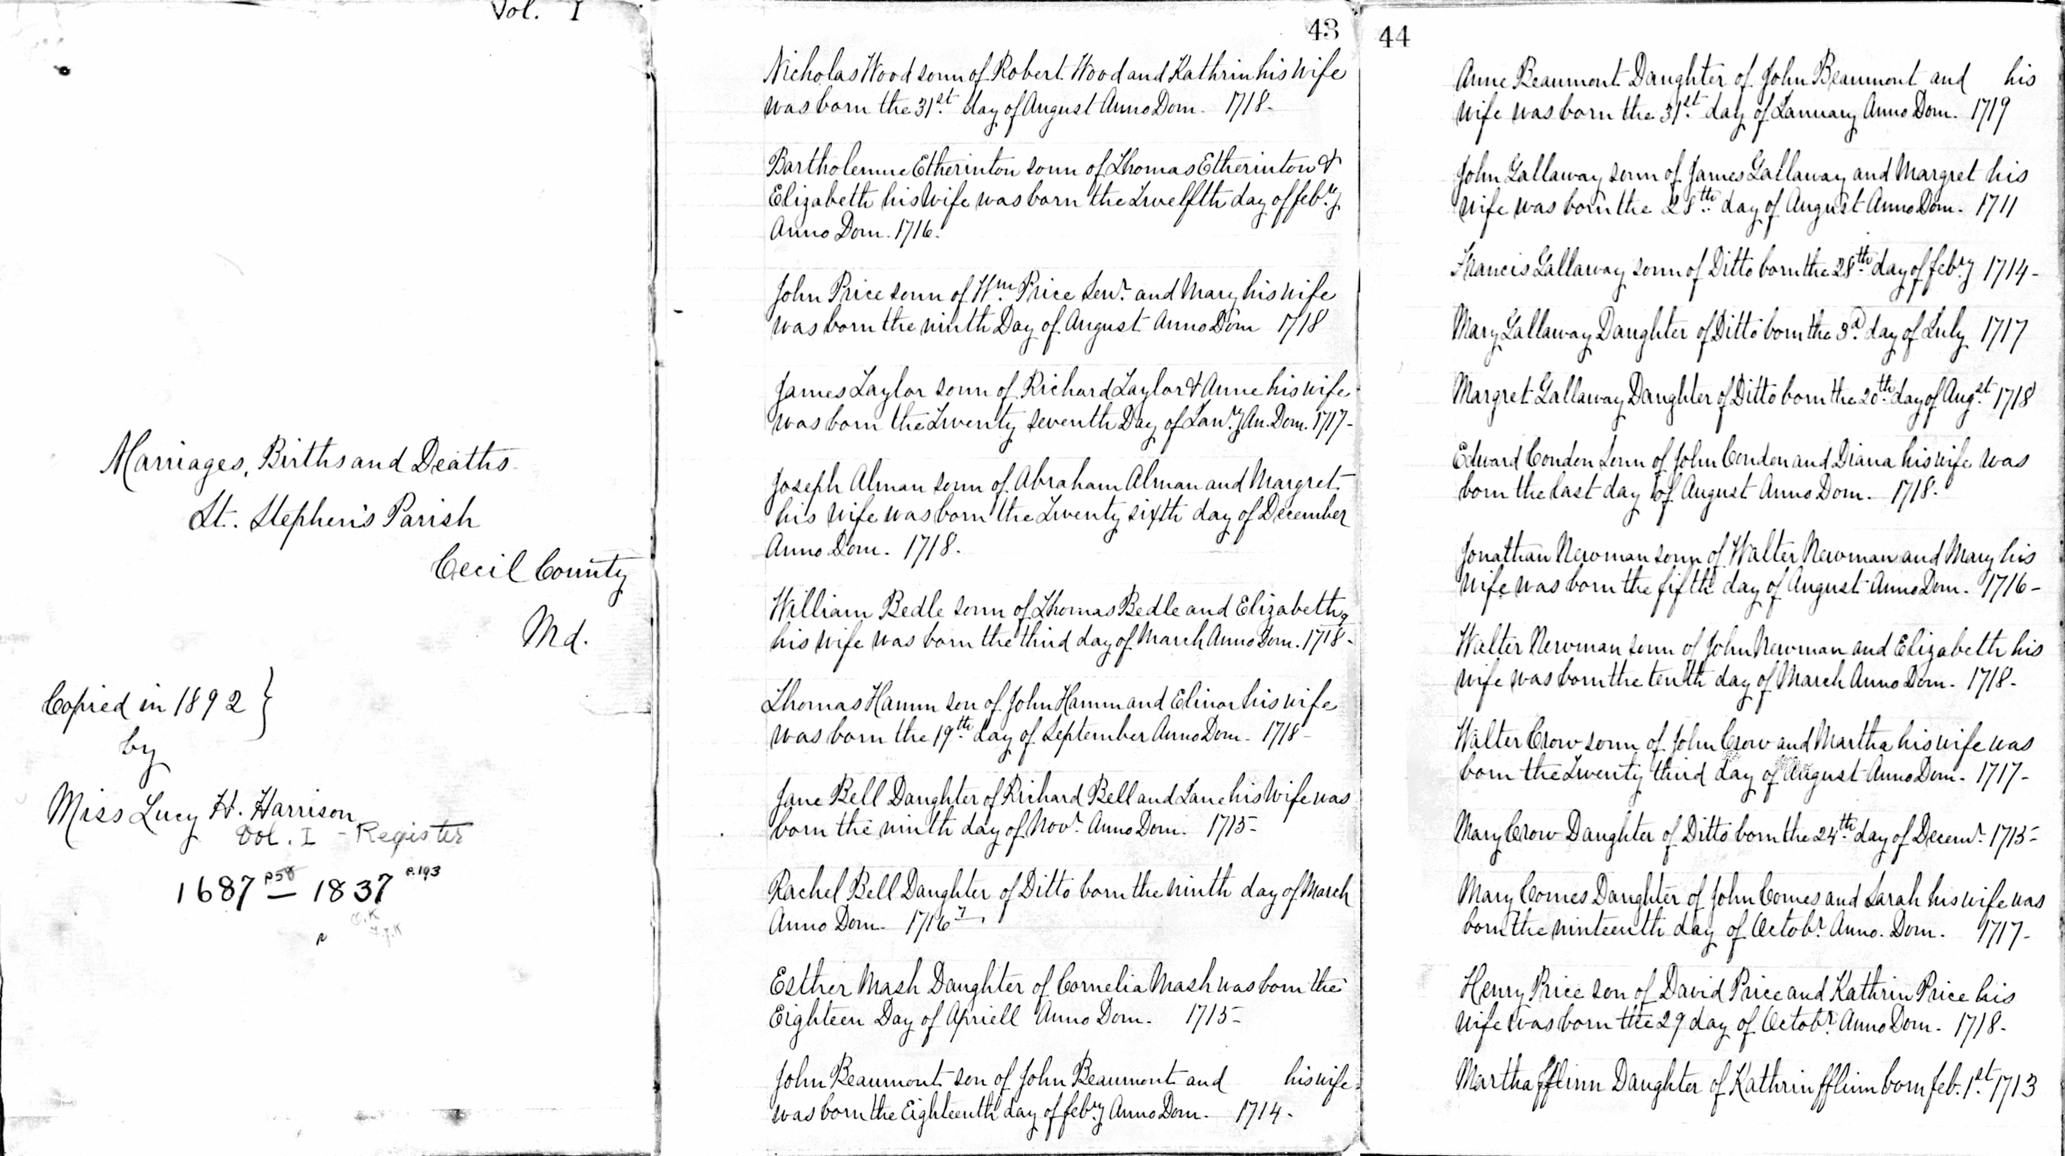 Vol. I
Marriages, Births and Deaths
St. Stephen's Parish
Cecil County
Md.
Copied in 1892 }
by
Miss Lucy H. Harrison
Vol. I - Register
p58 p.193
1687 — 1837
O.K
43
Nicholas Wood sonn of Robert Wood and Kathrin his Wife
was born the 31st. day of August Anno Dom. 1718-
Bartholemue Etherinton sonn of Thomas Etherinton &
Elizabeth his Wife was born the Twelfth day of feb.ry
Anno Dom. 1716.
John Price sonn of Wm. Price Senr. and Mary his wife
was born the ninth Day of August Anno Dom 1718
James Taylor sonn of Richard Taylor & Anne his wife
was born the Twenty seventh Day of Jan.ry An. Dom. 1717-
Joseph Alman sonn of Abraham Alman and Margret
his wife was born the Twenty sixth day of December
Anno Dom. 1718.
William Bedle sonn of Thomas Bedle and Elizabeth
his wife was born the third day of March Anno Dom. 1718-
Thomas Hamm son of John Hamm and Elinor his wife
was born the 19th. day of September Anno Dom. 1718-
Jane Bell Daughter of Richard Bell and Jane his Wife was
born the ninth day of Novr. Anno Dom. 1715-
Rachel Bell Daughter of Ditto born the ninth day of March
Anno Dom. 1716 7
Esther Mash Daughter of Cornelia Mash was born the
Eighteen Day of Apriell Anno Dom. 1715-
John Beaumont son of John Beaumont and his wife
was born the Eighteenth day of feb.ry Anno Dom. 1714-
44
Anne Beaumont Daughter of John Beaumont and his
wife was born the 31st. day of January Anno Dom. 1719
John Gallaway sonn of James Gallaway and Margret his
wife was born the 28th. day of August Anno Dom. 1711
Francis Gallaway sonn of Ditto born the 28th. day of feb.ry 1714-
Mary Gallaway Daughter of Ditto born the 3d. day of July 1717
Margret Gallaway Daughter of Ditto born the 20th. day of Aug.st 1718
Edward Condon sonn of John Condon and Diana his wife was
born the last day of August Anno Dom. 1718-
Jonathan Newman sonn of Walter Newman and Mary his
wife was born the fifth day of August Anno Dom. 1716-
Walter Newman sonn of John Newman and Elizabeth his
wife was born the tenth day of March Anno Dom. 1718-
Walter Crow sonn of John Crow and Martha his wife was
born the Twenty third day of August Anno Dom. 1717-
Mary Crow Daughter of Ditto born the 24th. day of Decemr. 1715-
Mary Comes Daughter of John Comes and Sarah his wife was
born the ninteenth day of Octobr. Anno. Dom. 1717-
Henry Price son of David Price and Kathrin Price his
wife was born the 29 day of Octobr. Anno Dom. 1718-
Martha fflinn Daughter of Kathrin fflinn born feb. 1st. 1713